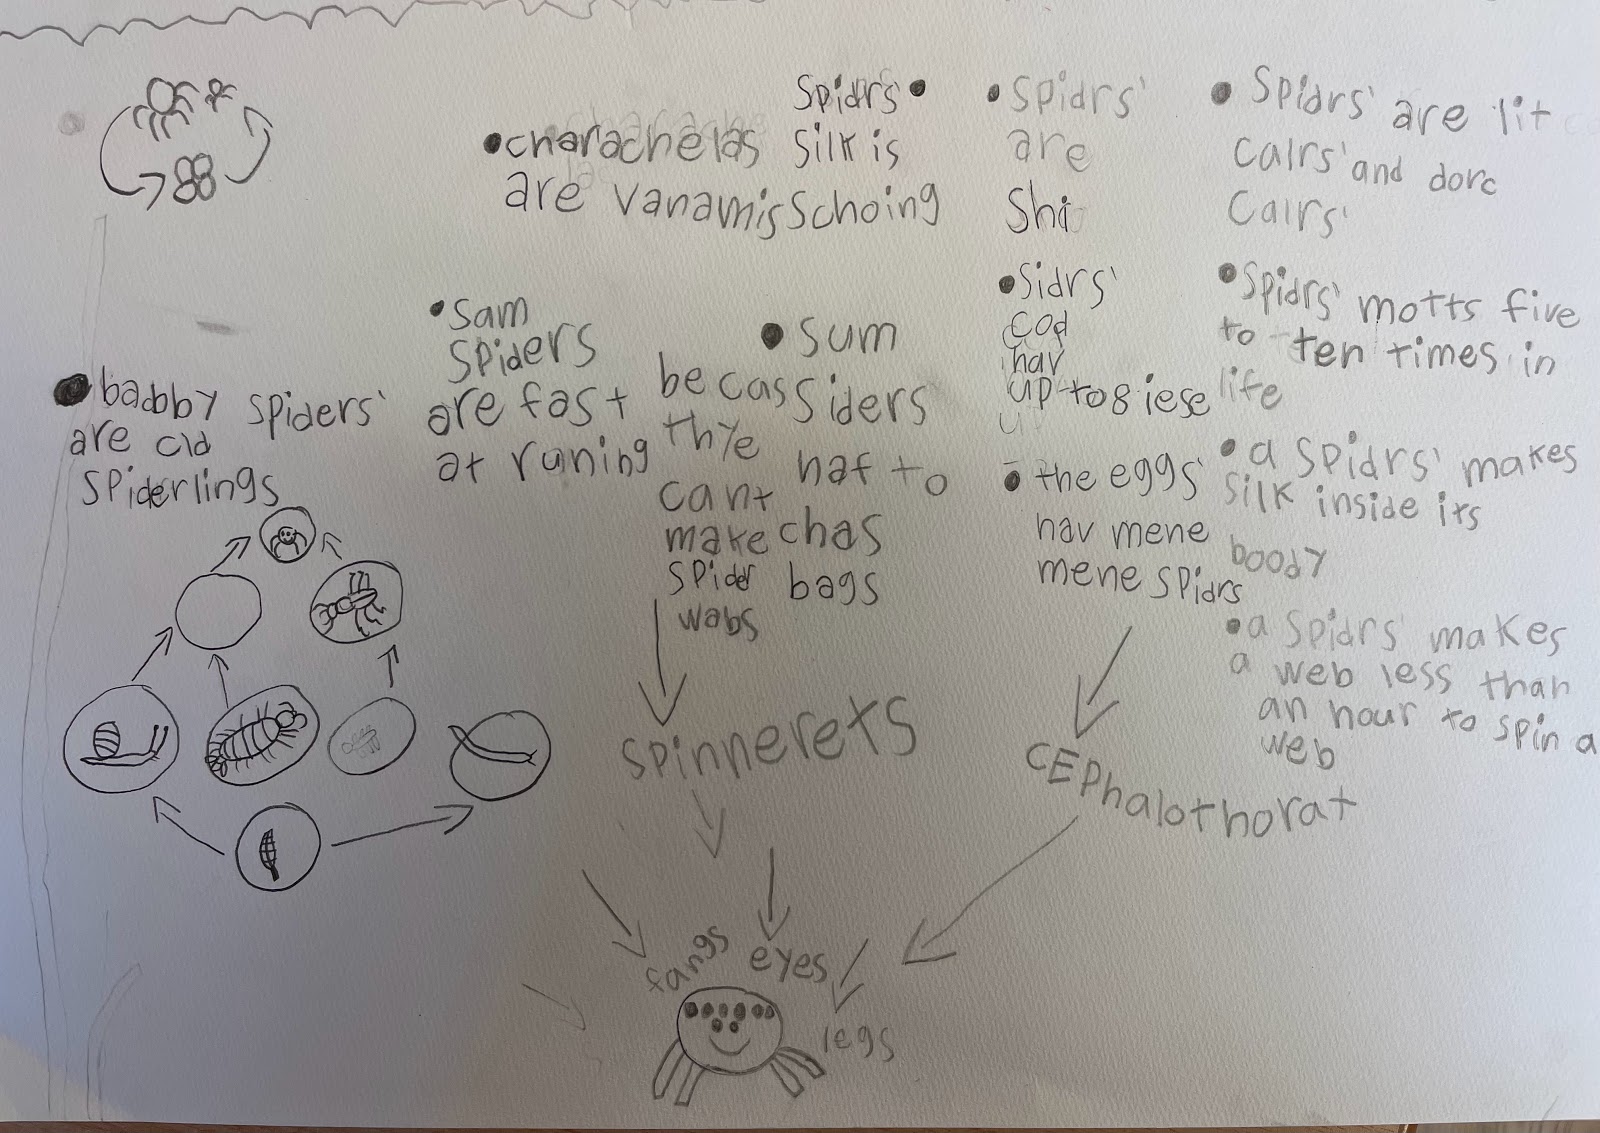 • charachelas
are vanamis
Spidrs' •
silk is
schoing
• Spidrs'
are
Shi
• Spidrs' are lit
calrs' and dorc
Calrs'
• badbby spiders'
are cld
spiderlings
• sam
spiders
are fast
at runing
• sum
Siders
haf to
chas
bags
becas
thye
cant
make
spider
wabs
• Sidrs'
cod
hav
up to 8 iese
• the eggs'
hav mene
mene spidrs
• Spidrs' motts five
to ten times in
life
• a spidrs' makes
silk inside its
boody
• a spidrs' makes
a web less than
an hour to spin a
web
spinnerets
CEPhalothorat
fangs
eyes
legs